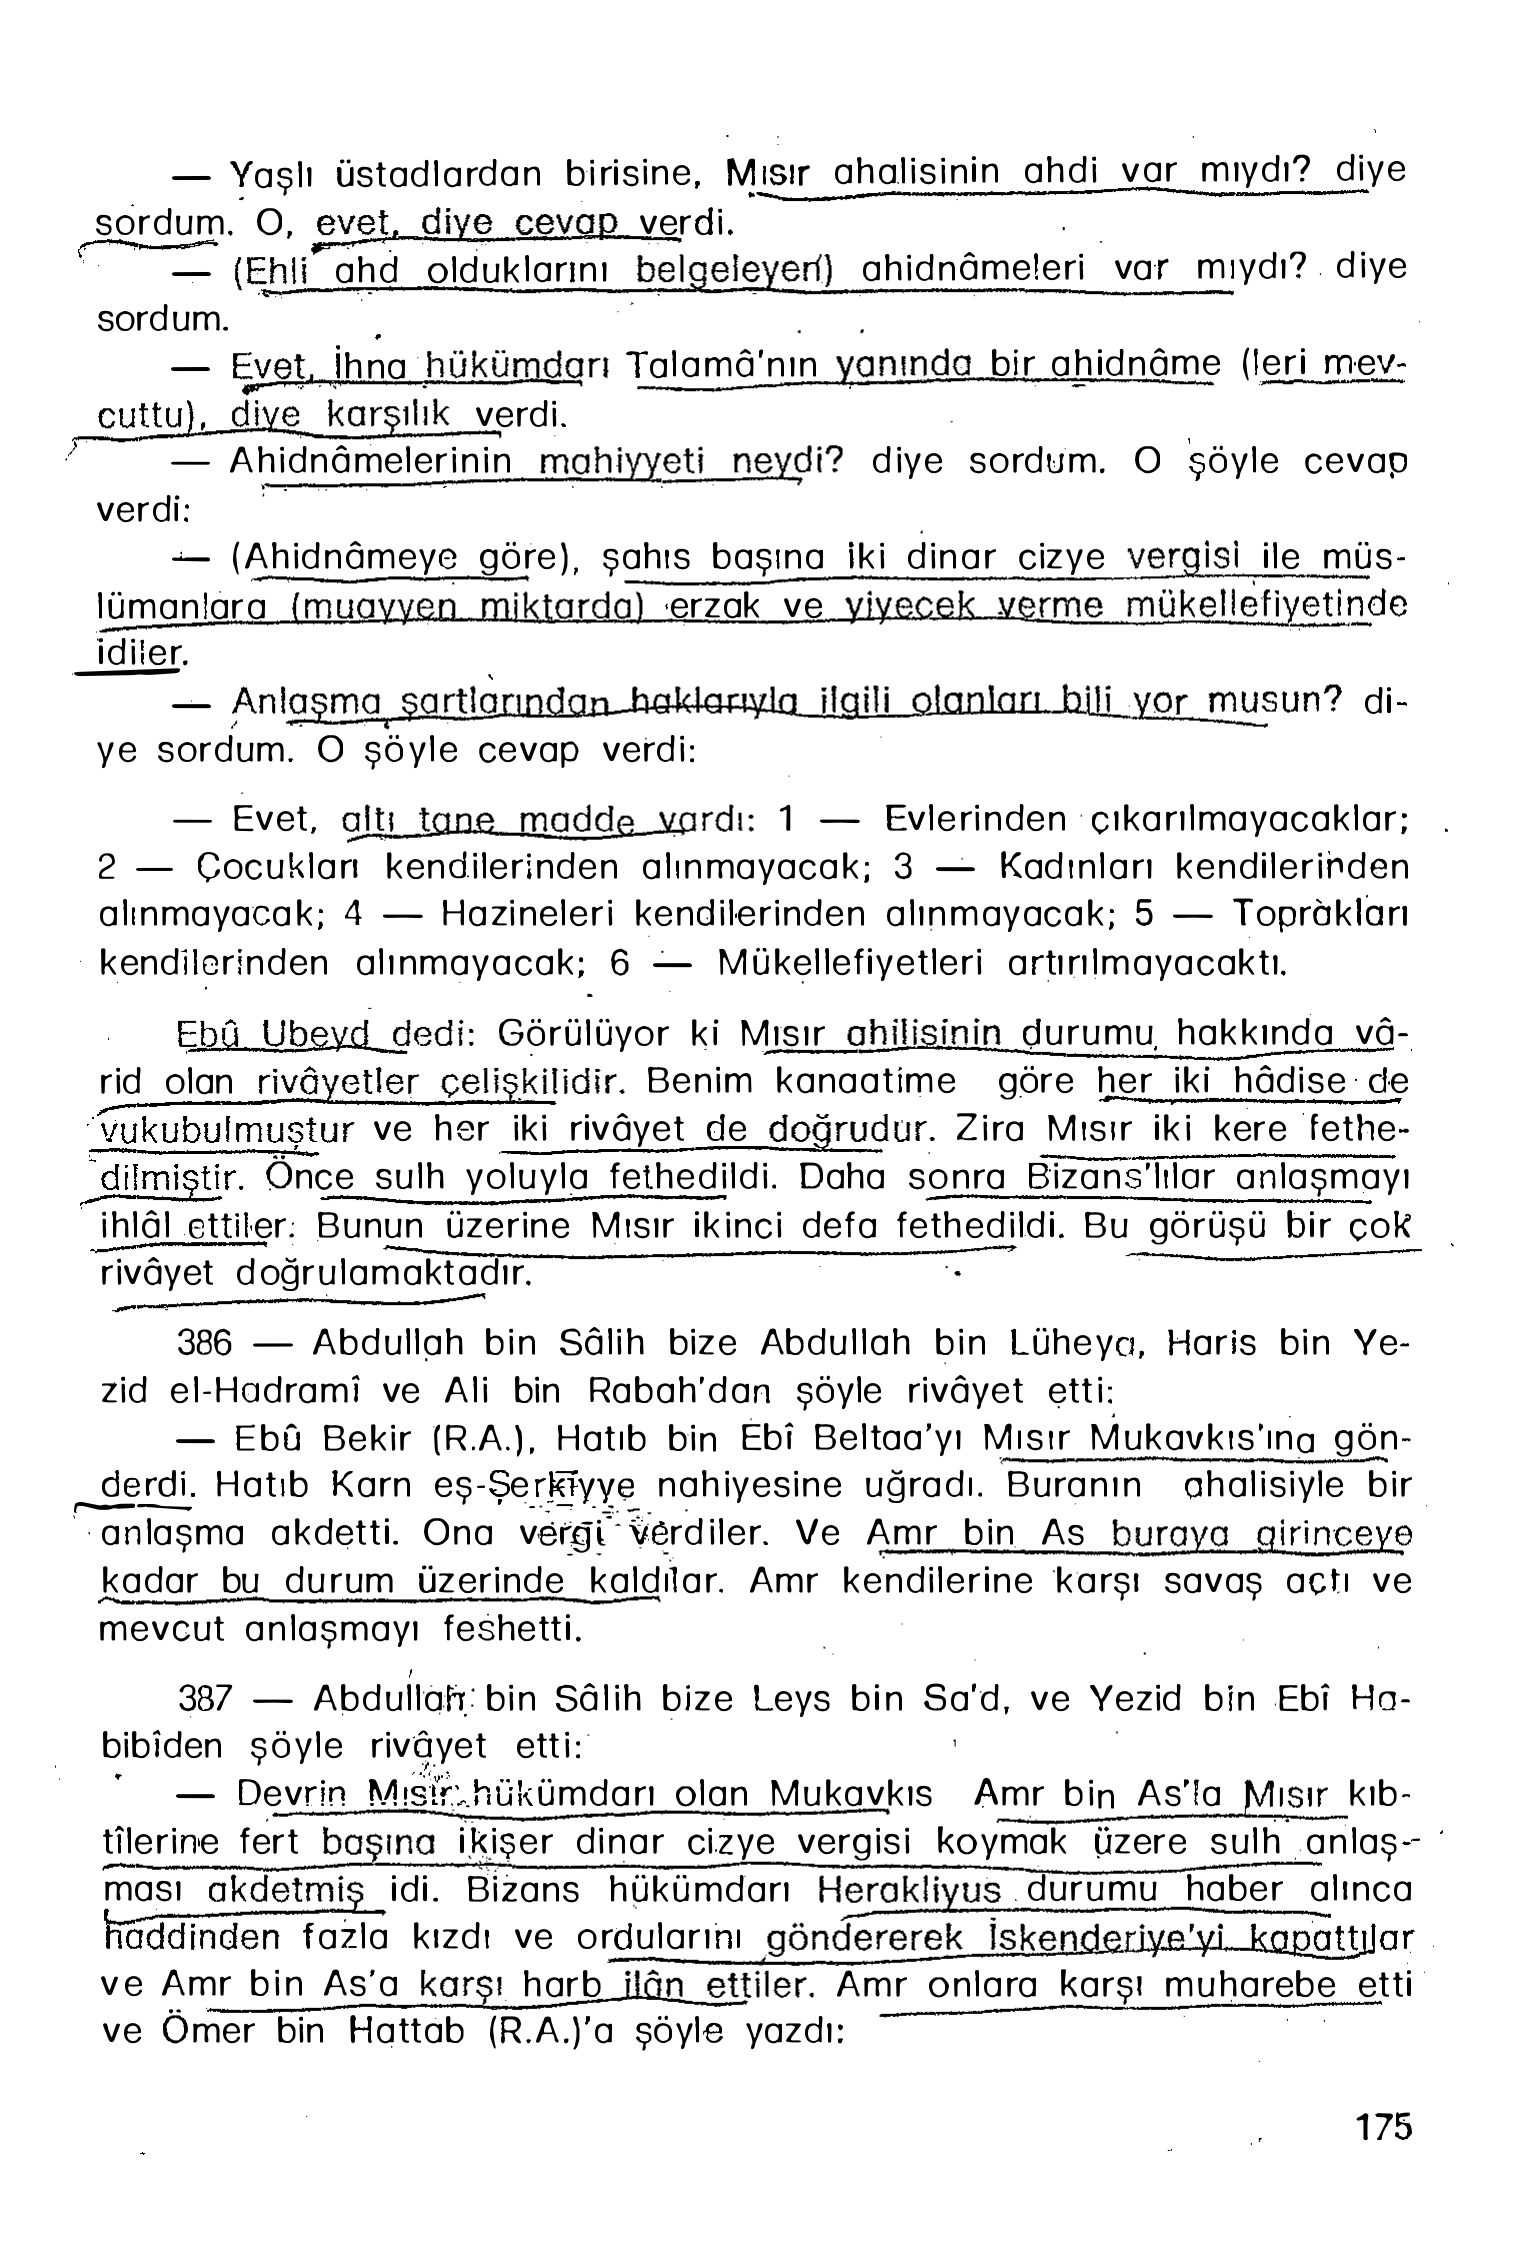 — Yaşlı üstadlardan birisine, Mısır ahalisinin ahdi var mıydı? diye
sordum. O, evet, diye cevap verdi.
— (Ehli ahd olduklarını belgeleyen) ahidnâmeleri var mıydı? diye
sordum.
— Evet, İhna hükümdarı Talamâ'nın yanında bir ahidnâme (leri mev-
cuttu), diye karşılık verdi.
— Ahidnâmelerinin mahiyyeti neydi? diye sordum. O şöyle cevap
verdi:
— (Ahidnâmeye göre), şahıs başına iki dinar cizye vergisi ile müs-
lümanlara (muayyen miktarda) erzak ve yiyecek verme mükellefiyetinde
idiler.
— Anlaşma şartlarından haklarıyla ilgili olanları bili yor musun? di-
ye sordum. O şöyle cevap verdi:
— Evet, altı tane madde vardı: 1 — Evlerinden çıkarılmayacaklar;
2 — Çocukları kendilerinden alınmayacak; 3 — Kadınları kendilerinden
alınmayacak; 4 — Hazineleri kendilerinden alınmayacak; 5 — Toprakları
kendilerinden alınmayacak; 6 — Mükellefiyetleri artırılmayacaktı.
Ebû Ubeyd dedi: Görülüyor ki Mısır ahilisinin durumu hakkında vâ-
rid olan rivâyetler çelişkilidir. Benim kanaatime göre her iki hâdise de
vukubulmuştur ve her iki rivâyet de doğrudur. Zira Mısır iki kere fethe-
dilmiştir. Önce sulh yoluyla fethedildi. Daha sonra Bizans'lılar anlaşmayı
ihlâl ettiler. Bunun üzerine Mısır ikinci defa fethedildi. Bu görüşü bir çok
rivâyet doğrulamaktadır.
386 — Abdullah bin Sâlih bize Abdullah bin Lüheya, Haris bin Ye-
zid el-Hadramî ve Ali bin Rabah'dan şöyle rivâyet etti:
— Ebû Bekir (R.A.), Hatıb bin Ebî Beltaa'yı Mısır Mukavkıs'ına gön-
derdi. Hatıb Karn eş-Şerkîyye nahiyesine uğradı. Buranın ahalisiyle bir
anlaşma akdetti. Ona vergi verdiler. Ve Amr bin As buraya girinceye
kadar bu durum üzerinde kaldılar. Amr kendilerine karşı savaş açtı ve
mevcut anlaşmayı feshetti.
387 — Abdullah bin Sâlih bize Leys bin Sa'd, ve Yezid bin Ebî Ha-
bibîden şöyle rivâyet etti:
— Devrin Mısır hükümdarı olan Mukavkıs Amr bin As'la Mısır kıb-
tîlerine fert başına ikişer dinar cizye vergisi koymak üzere sulh anlaş-
ması akdetmiş idi. Bizans hükümdarı Herakliyus durumu haber alınca
haddinden fazla kızdı ve ordularını göndererek İskenderiye'yi kapattılar
ve Amr bin As'a karşı harb ilân ettiler. Amr onlara karşı muharebe etti
ve Ömer bin Hattab (R.A.)'a şöyle yazdı:
175